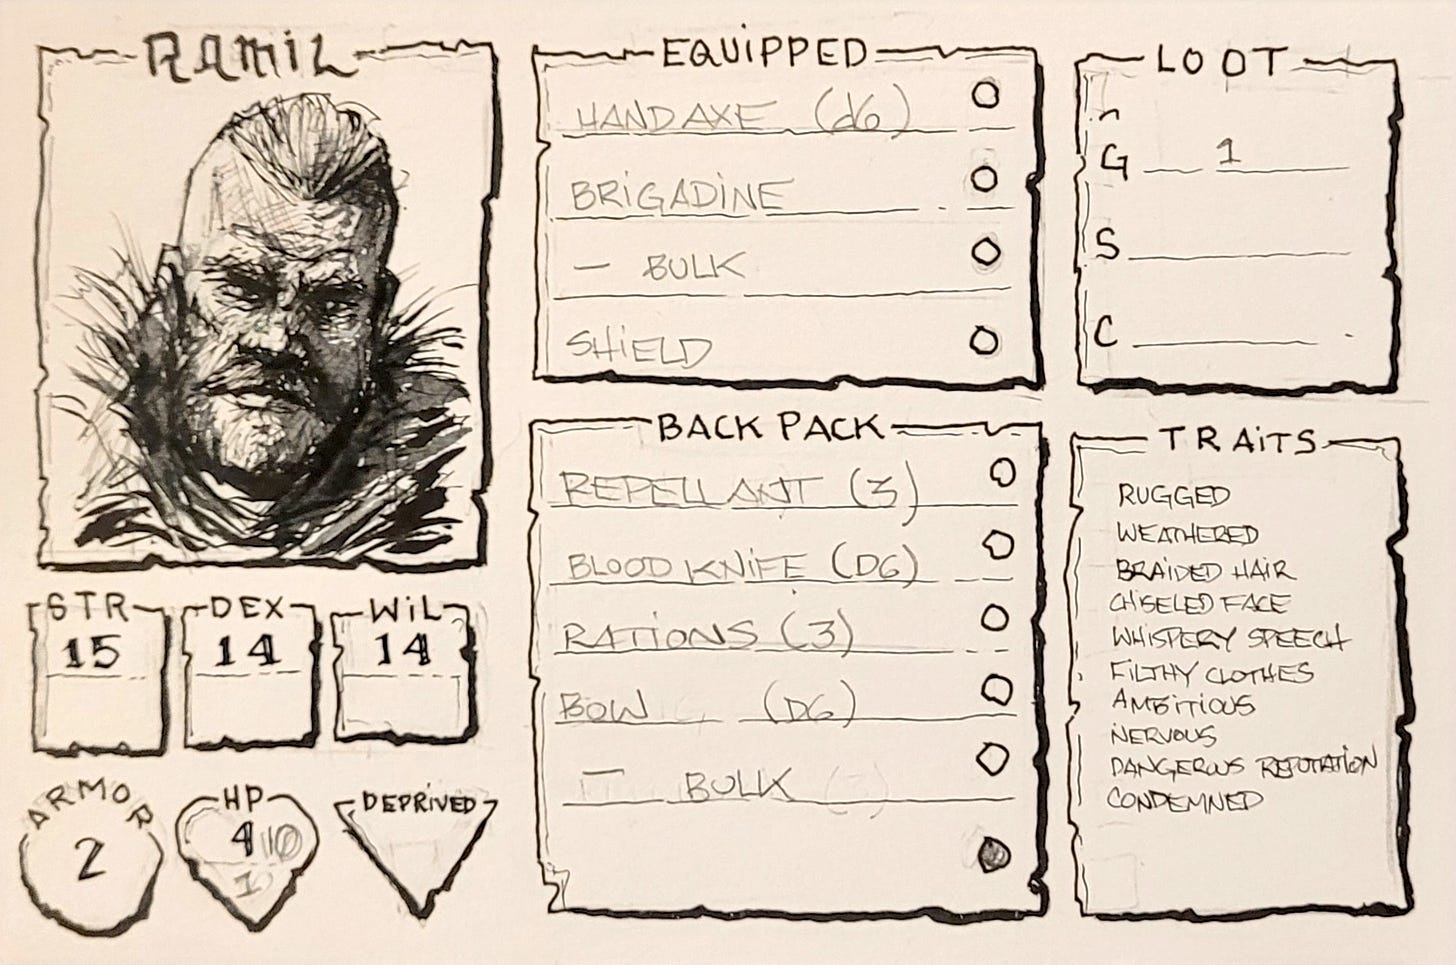 RAMIL
STR
15
DEX
14
WIL
14
ARMOR
2
HP
4
1
DEPRIVED
EQUIPPED
HAND AXE (d6)
BRIGADINE
— BULK
SHIELD
BACK PACK
REPELLANT (3)
BLOOD KNIFE (D6)
RATIONS (3)
BOW (D6)
— BULK
LOOT
G 1
S
C
TRAITS
RUGGED
WEATHERED
BRAIDED HAIR
CHISELED FACE
WHISPERY SPEECH
FILTHY CLOTHES
AMBITIOUS
NERVOUS
DANGEROUS REPUTATION
CONDEMNED